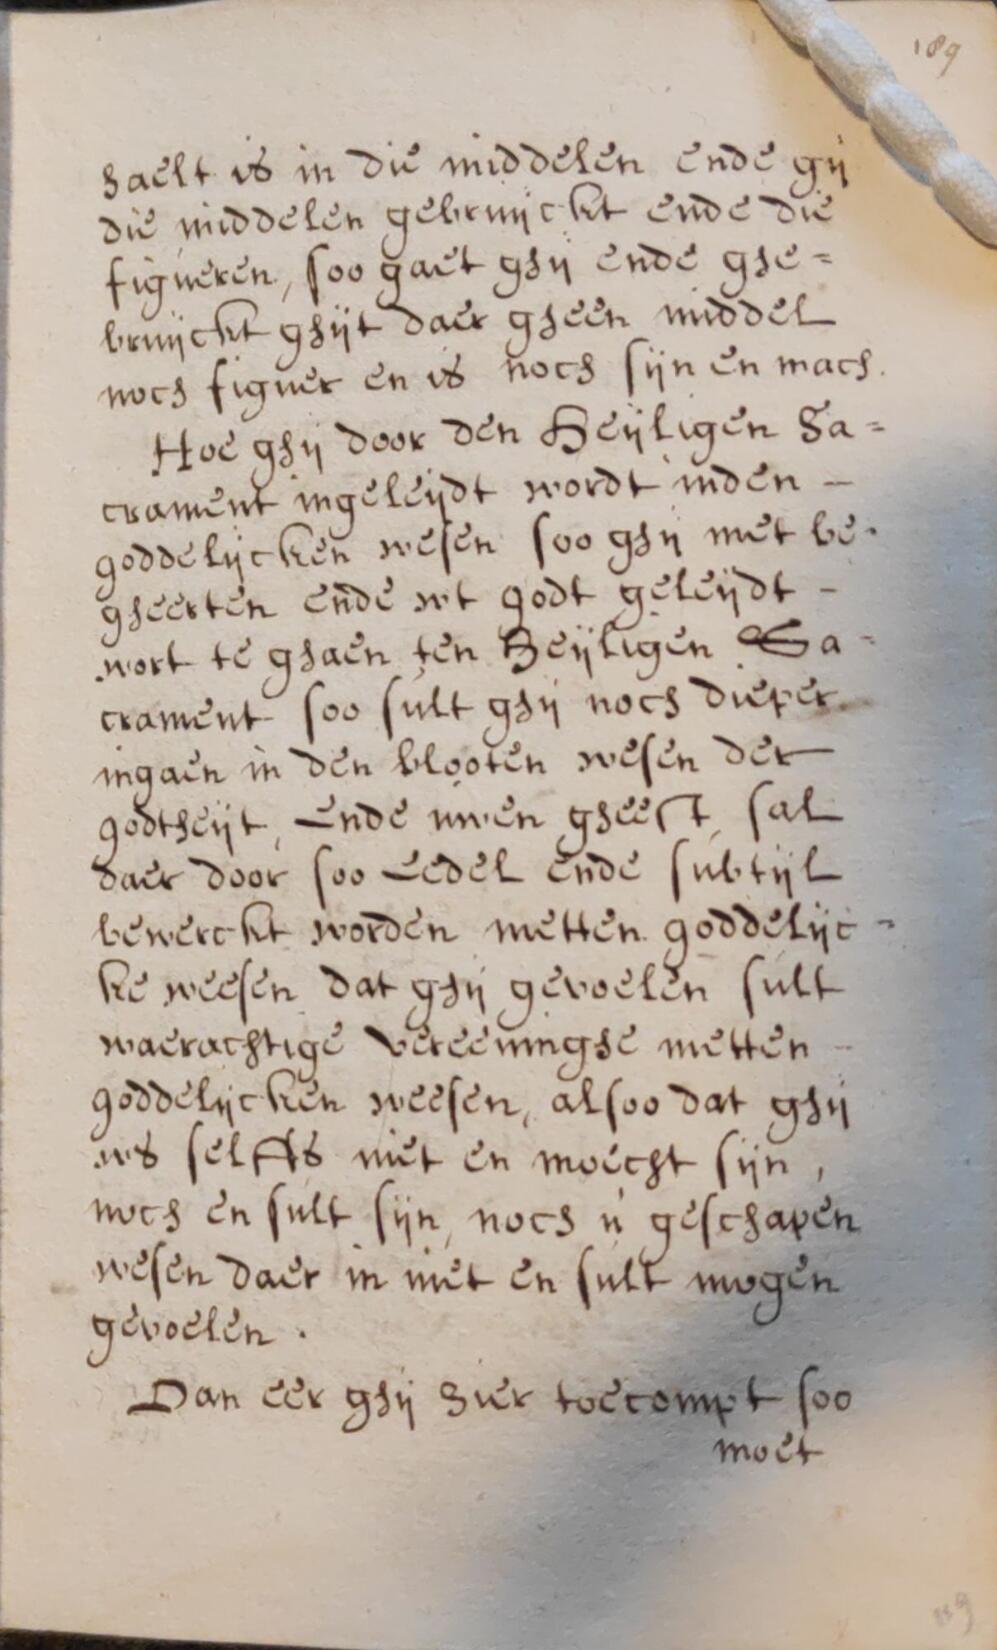 189
haelt is in die middelen ende gij
die middelen gebruijckt ende die
figueren, soo gaet ghij ende ghe=
bruijckt ghijt daer gheen middel
noch figuer en is noch sijn en mach.
Hoe ghij door den Heijligen Sa=
crament ingeleijdt wordt inden –
goddelijcken wesen soo ghij met be-
gheerten ende wt godt geleijdt –
wort te ghaen ten Heijligen Sa-
crament soo sult ghij noch dieper
ingaen in den blooten wesen der
godtheijt, Ende uwen gheest, sal
daer door soo Eedel ende subtijl
bewerckt worden metten goddelijc-
ke weesen dat ghij gevoelen sult
waerachtige vereeninghe metten –
goddelijcken weesen, alsoo dat ghij
ws selffs niet en moecht sijn,
noch en sult sijn, noch u geschapen
wesen daer in niet en sult mogen
gevoelen.
Dan eer ghij hier toecompt soo
moet